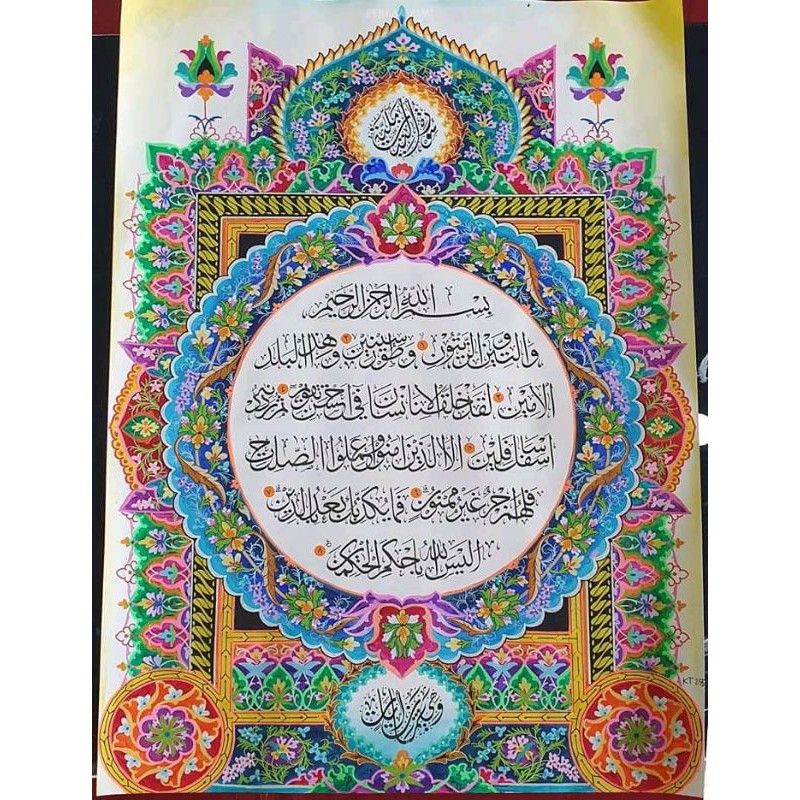 سورة التين
بسم الله الرحمن الرحيم
والتين والزيتون ١ وطور سينين ٢ وهذا البلد
الامين ٣ لقد خلقنا الانسان في احسن تقويم ٤ ثم رددنه
اسفل سافلين ٥ الا الذين امنوا وعملوا الصلحت
فلهم اجر غير ممنون ٦ فما يكذبك بعد بالدين ٧
اليس الله باحكم الحكمين ٨